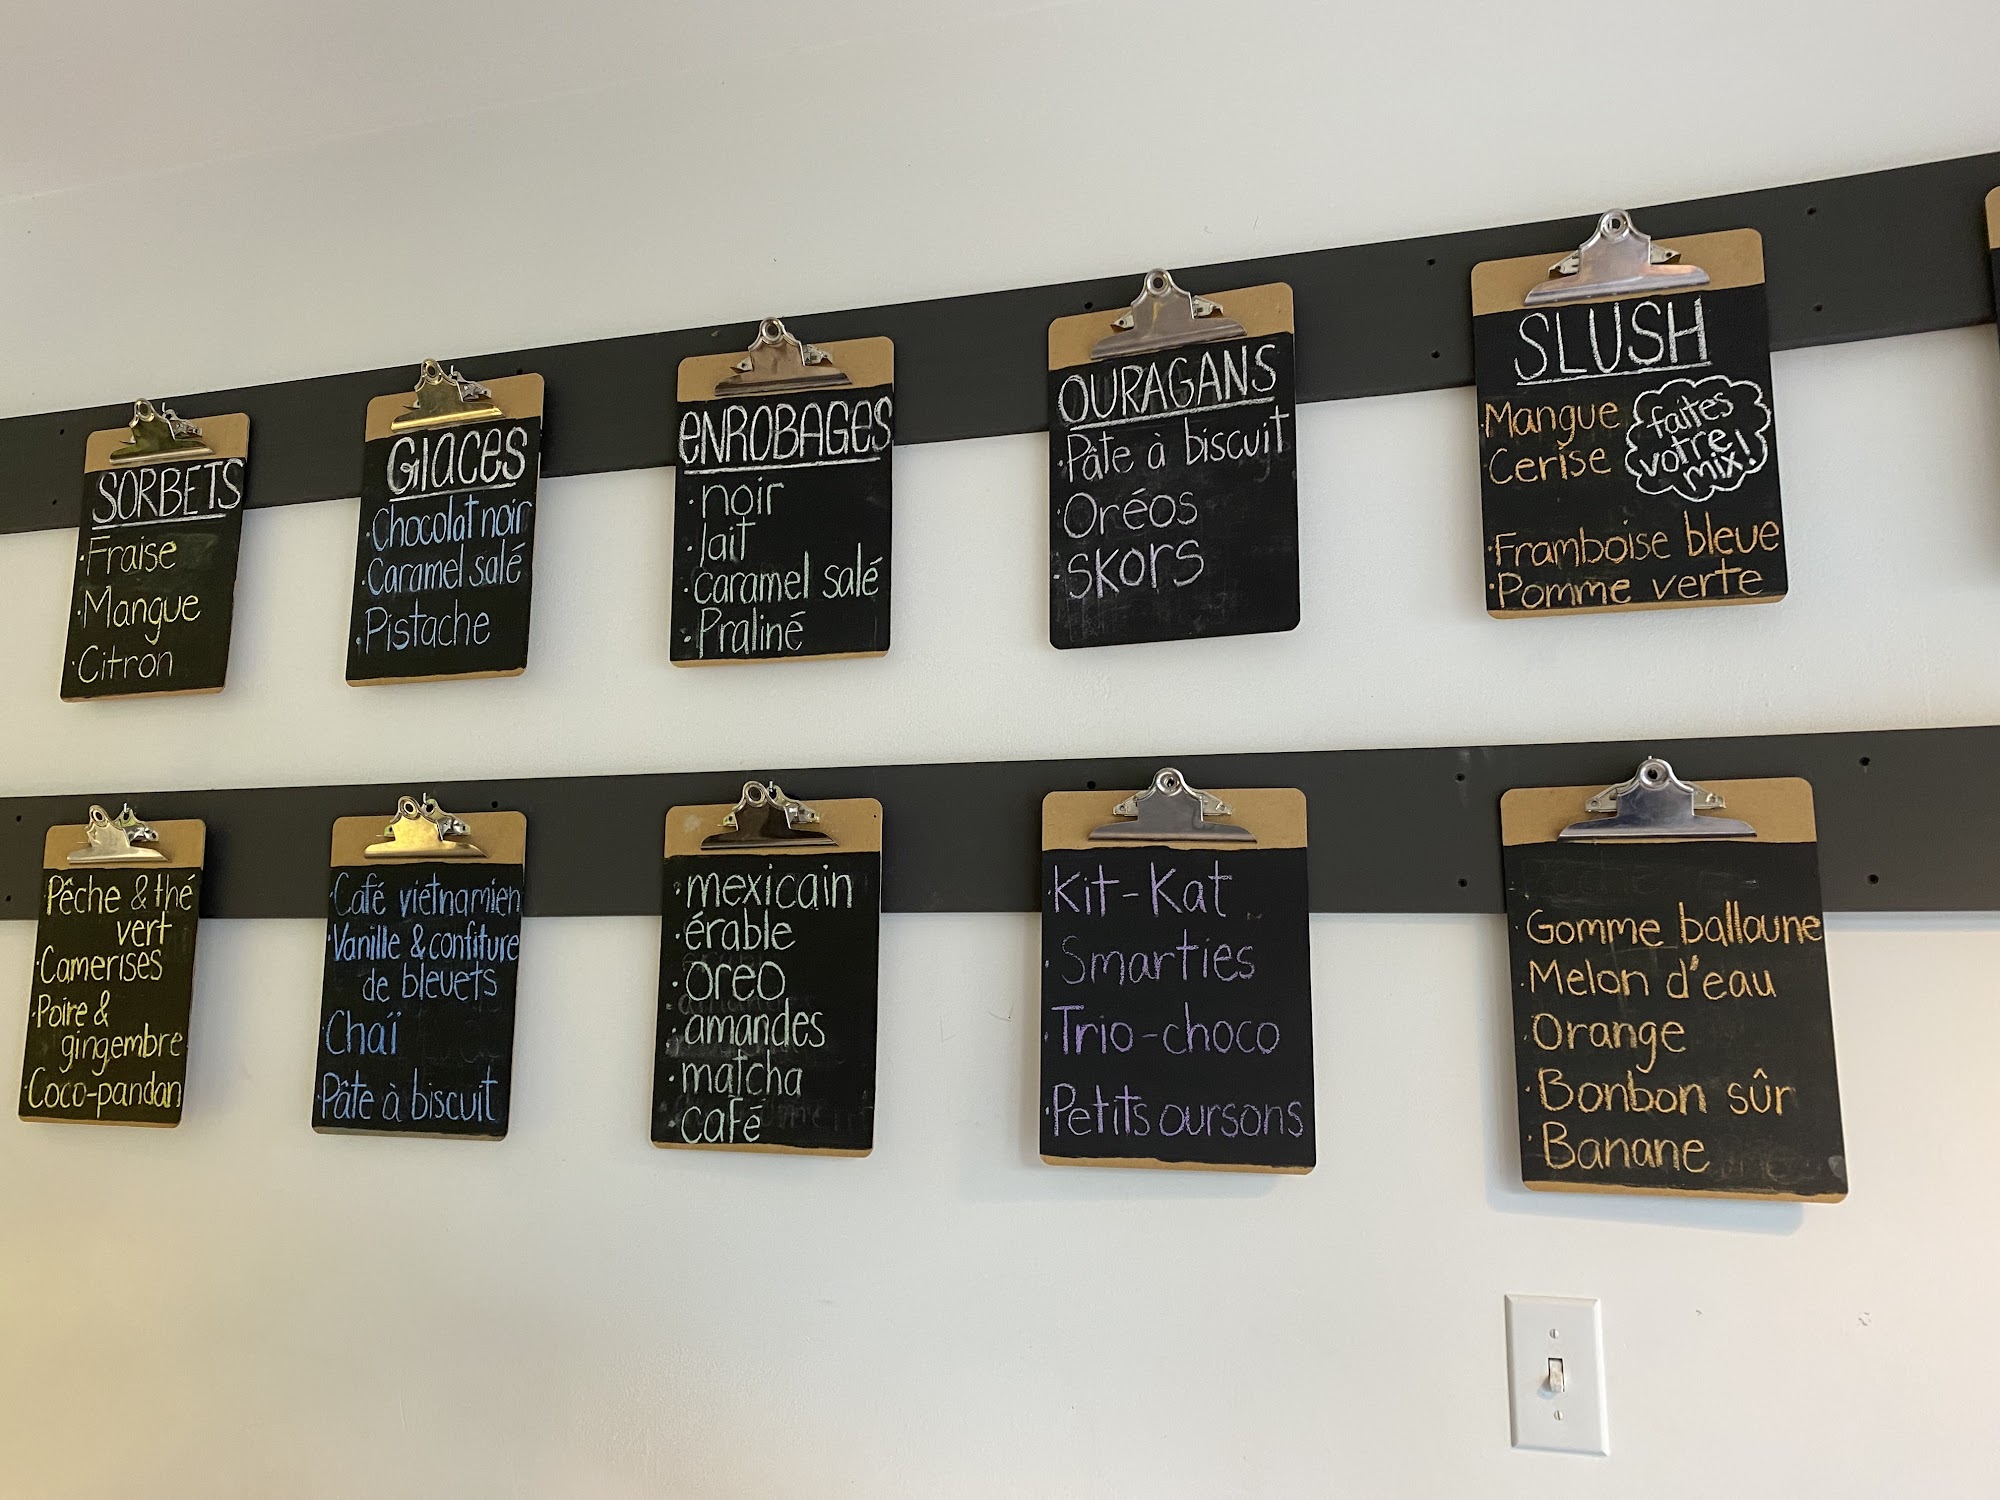 SORBETS
·Fraise
·Mangue
·Citron
GLACES
·Chocolat noir
·Caramel salé
·Pistache
ENROBAGES
·noir
·lait
·caramel salé
·Praliné
OURAGANS
·Pâte à biscuit
·Oréos
·SKORS
SLUSH
·Mangue
·Cerise
faites
votre
mix!
·Framboise bleue
·Pomme verte
·Pêche & thé
vert
·Camerises
·Poire &
gingembre
·Coco-pandan
·Café vietnamien
·Vanille & confiture
de bleuets
·Chaï
·Pâte à biscuit
·mexicain
·érable
·oreo
·amandes
·matcha
·café
·Kit-Kat
·Smarties
·Trio-choco
·Petits oursons
·Gomme balloune
·Melon d'eau
·Orange
·Bonbon sûr
·Banane